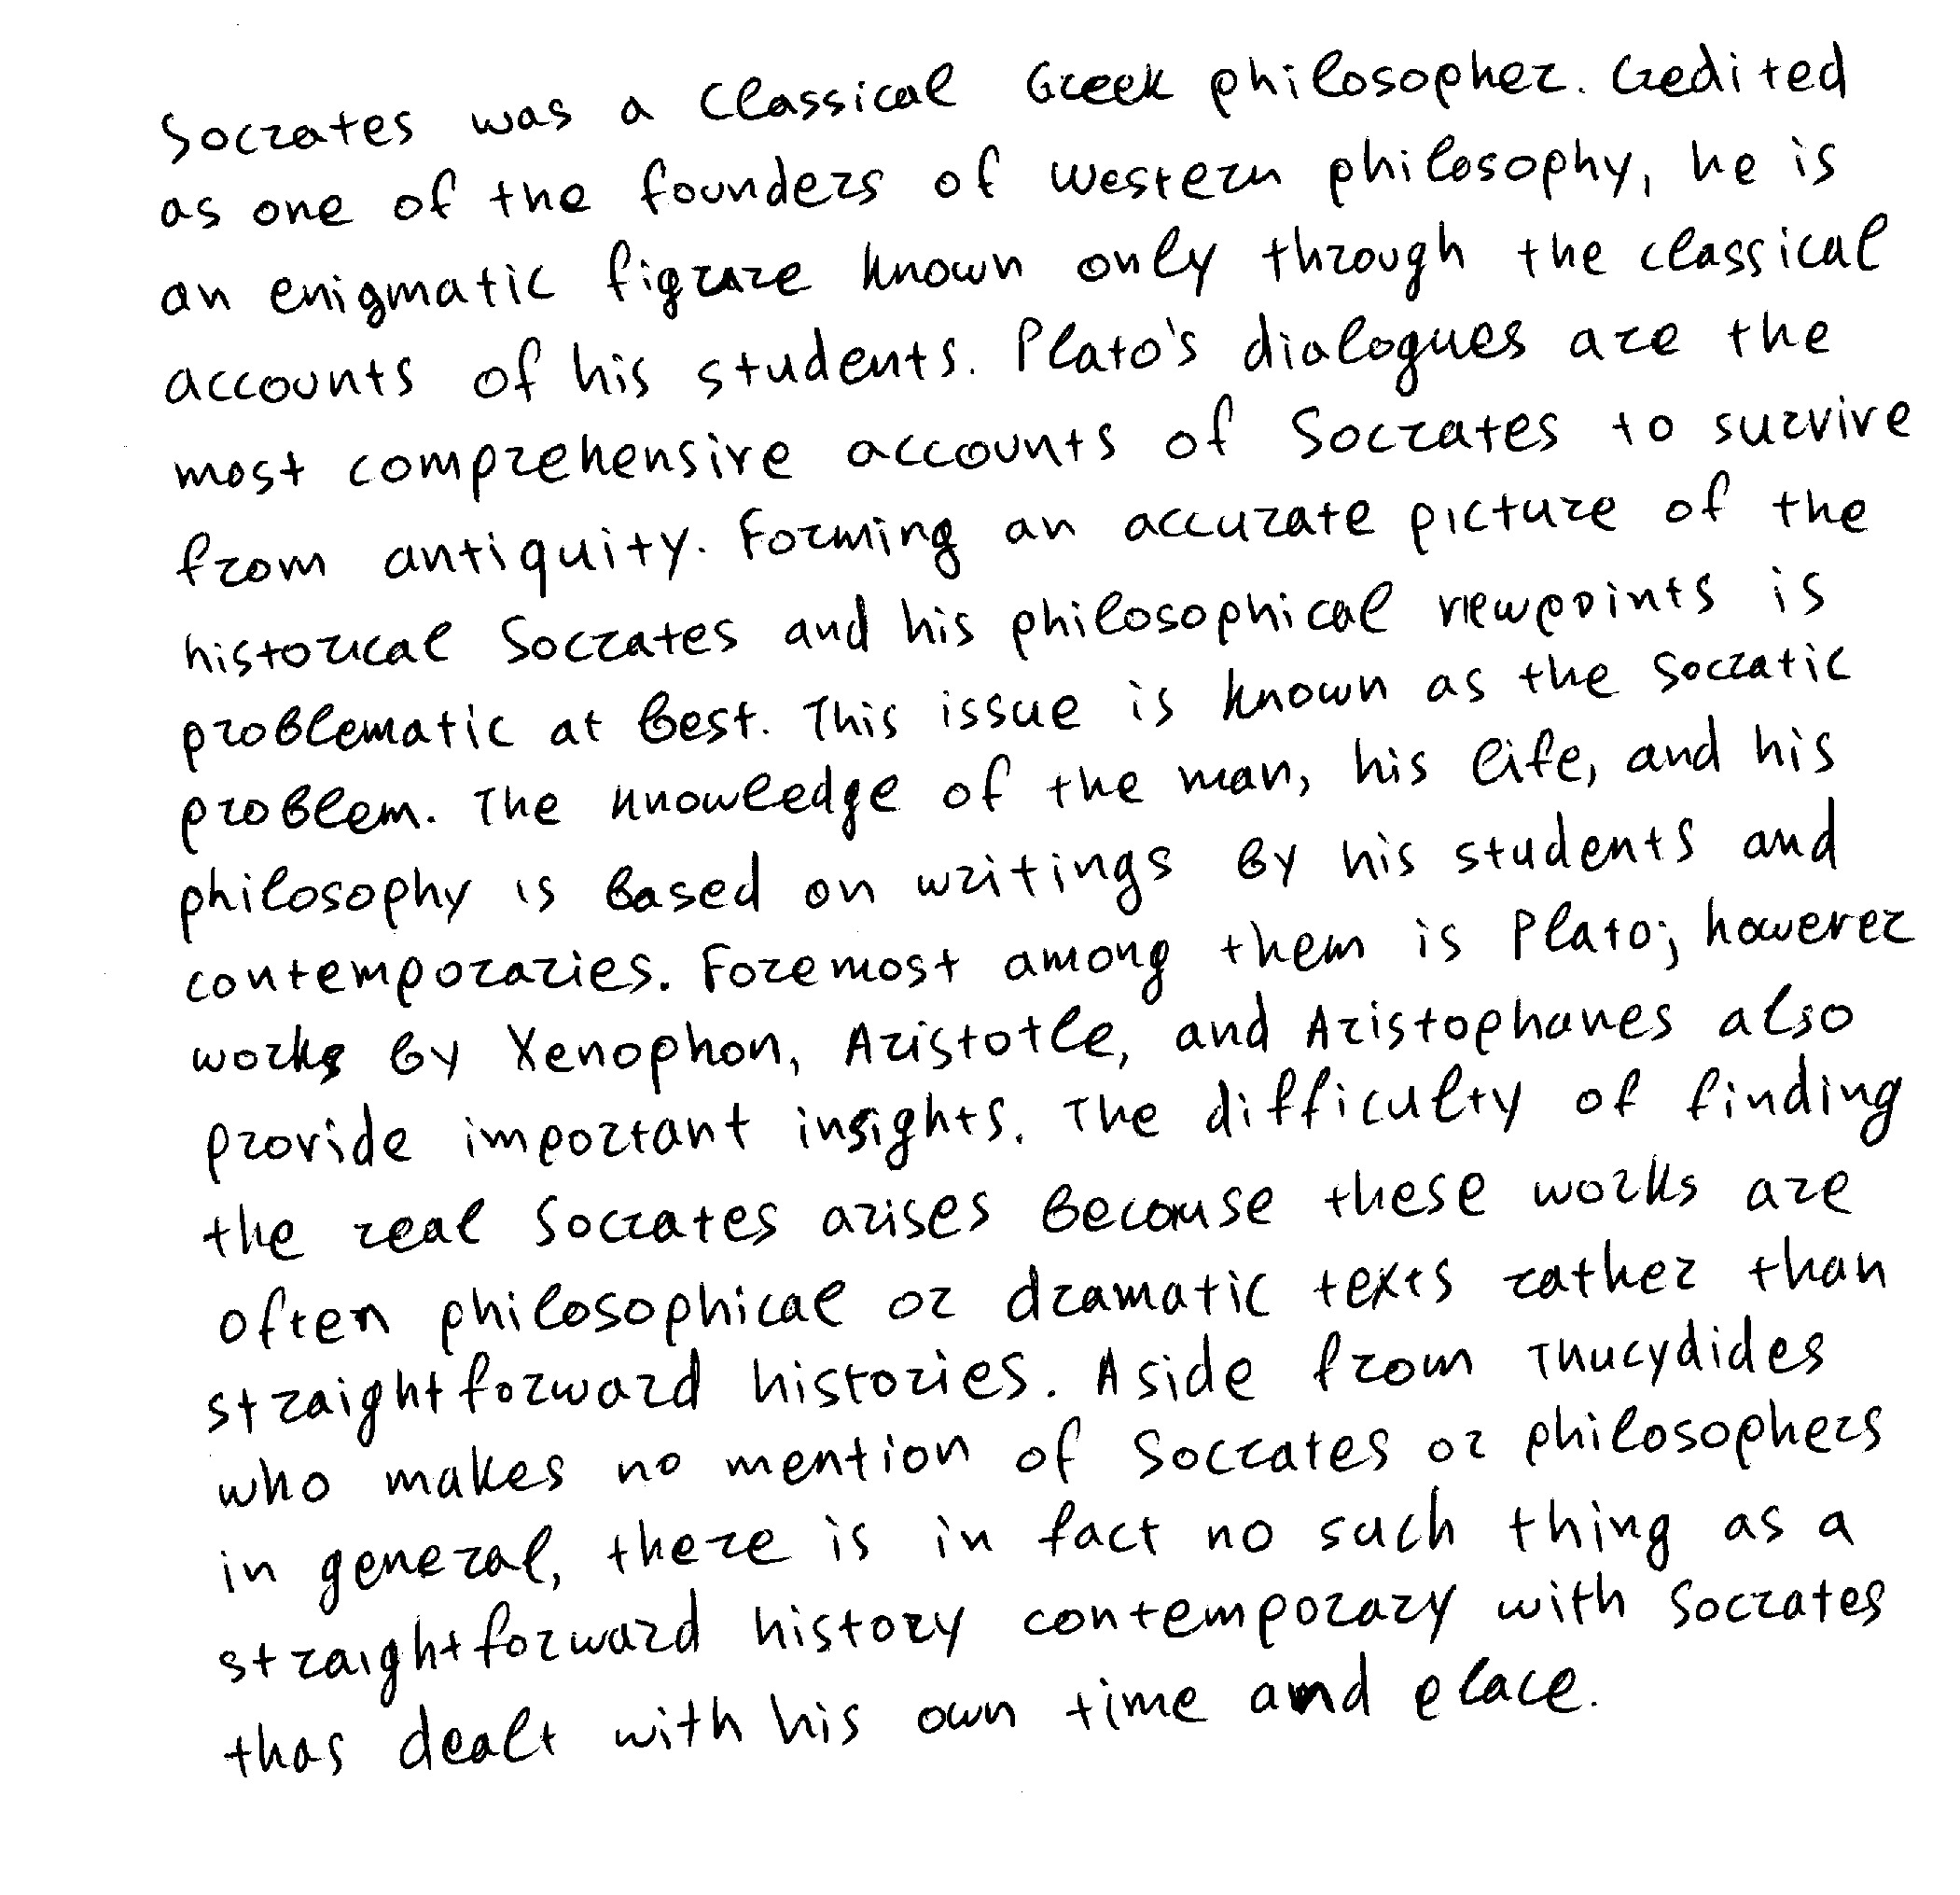 Socrates was a Classical Greek philosopher. Credited
as one of the founders of western philosophy, he is
an enigmatic figure known only through the classical
accounts of his students. Plato's dialogues are the
most comprehensive accounts of Socrates to survive
from antiquity. Forming an accurate picture of the
historical Socrates and his philosophical viewpoints is
problematic at best. This issue is known as the Socratic
problem. The knowledge of the man, his life, and his
philosophy is based on writings by his students and
contemporaries. Foremost among them is Plato; however
works by Xenophon, Aristotle, and Aristophanes also
provide important insights. The difficulty of finding
the real Socrates arises because these works are
often philosophical or dramatic texts rather than
straightforward histories. Aside from Thucydides
who makes no mention of Socrates or philosophers
in general, there is in fact no such thing as a
straightforward history contemporary with Socrates
thas dealt with his own time and place.